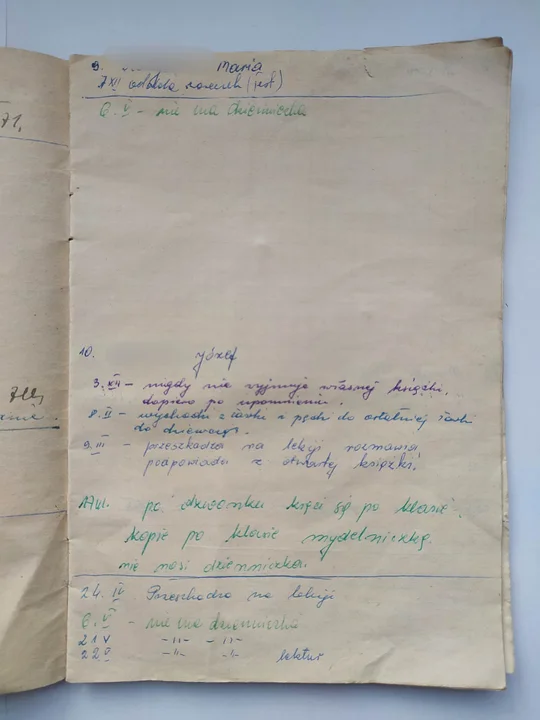 71.
9. Maria
7 XII odbiera rzeczek (test)
6. V - nie ma dzienniczka
10. Józef
3. XII - nigdy nie wyjmuje własnej książki.
dopiero po upomnieniu.
8. II - wychodzi z ławki z pędzi do ostatniej ławki
do dziewcząt.
9. III - przeszkadza na lekcji rozmawia
podpowiada z otwartej książki.
17 III. po dzwonku kręci się po klasie.
kopie po klasie mydelniczkę.
nie nosi dzienniczka.
24. IV Przeszkadza na lekcji
6. V - nie ma dzienniczka
21 V -"- -"-
22 V -"- -"- lektur